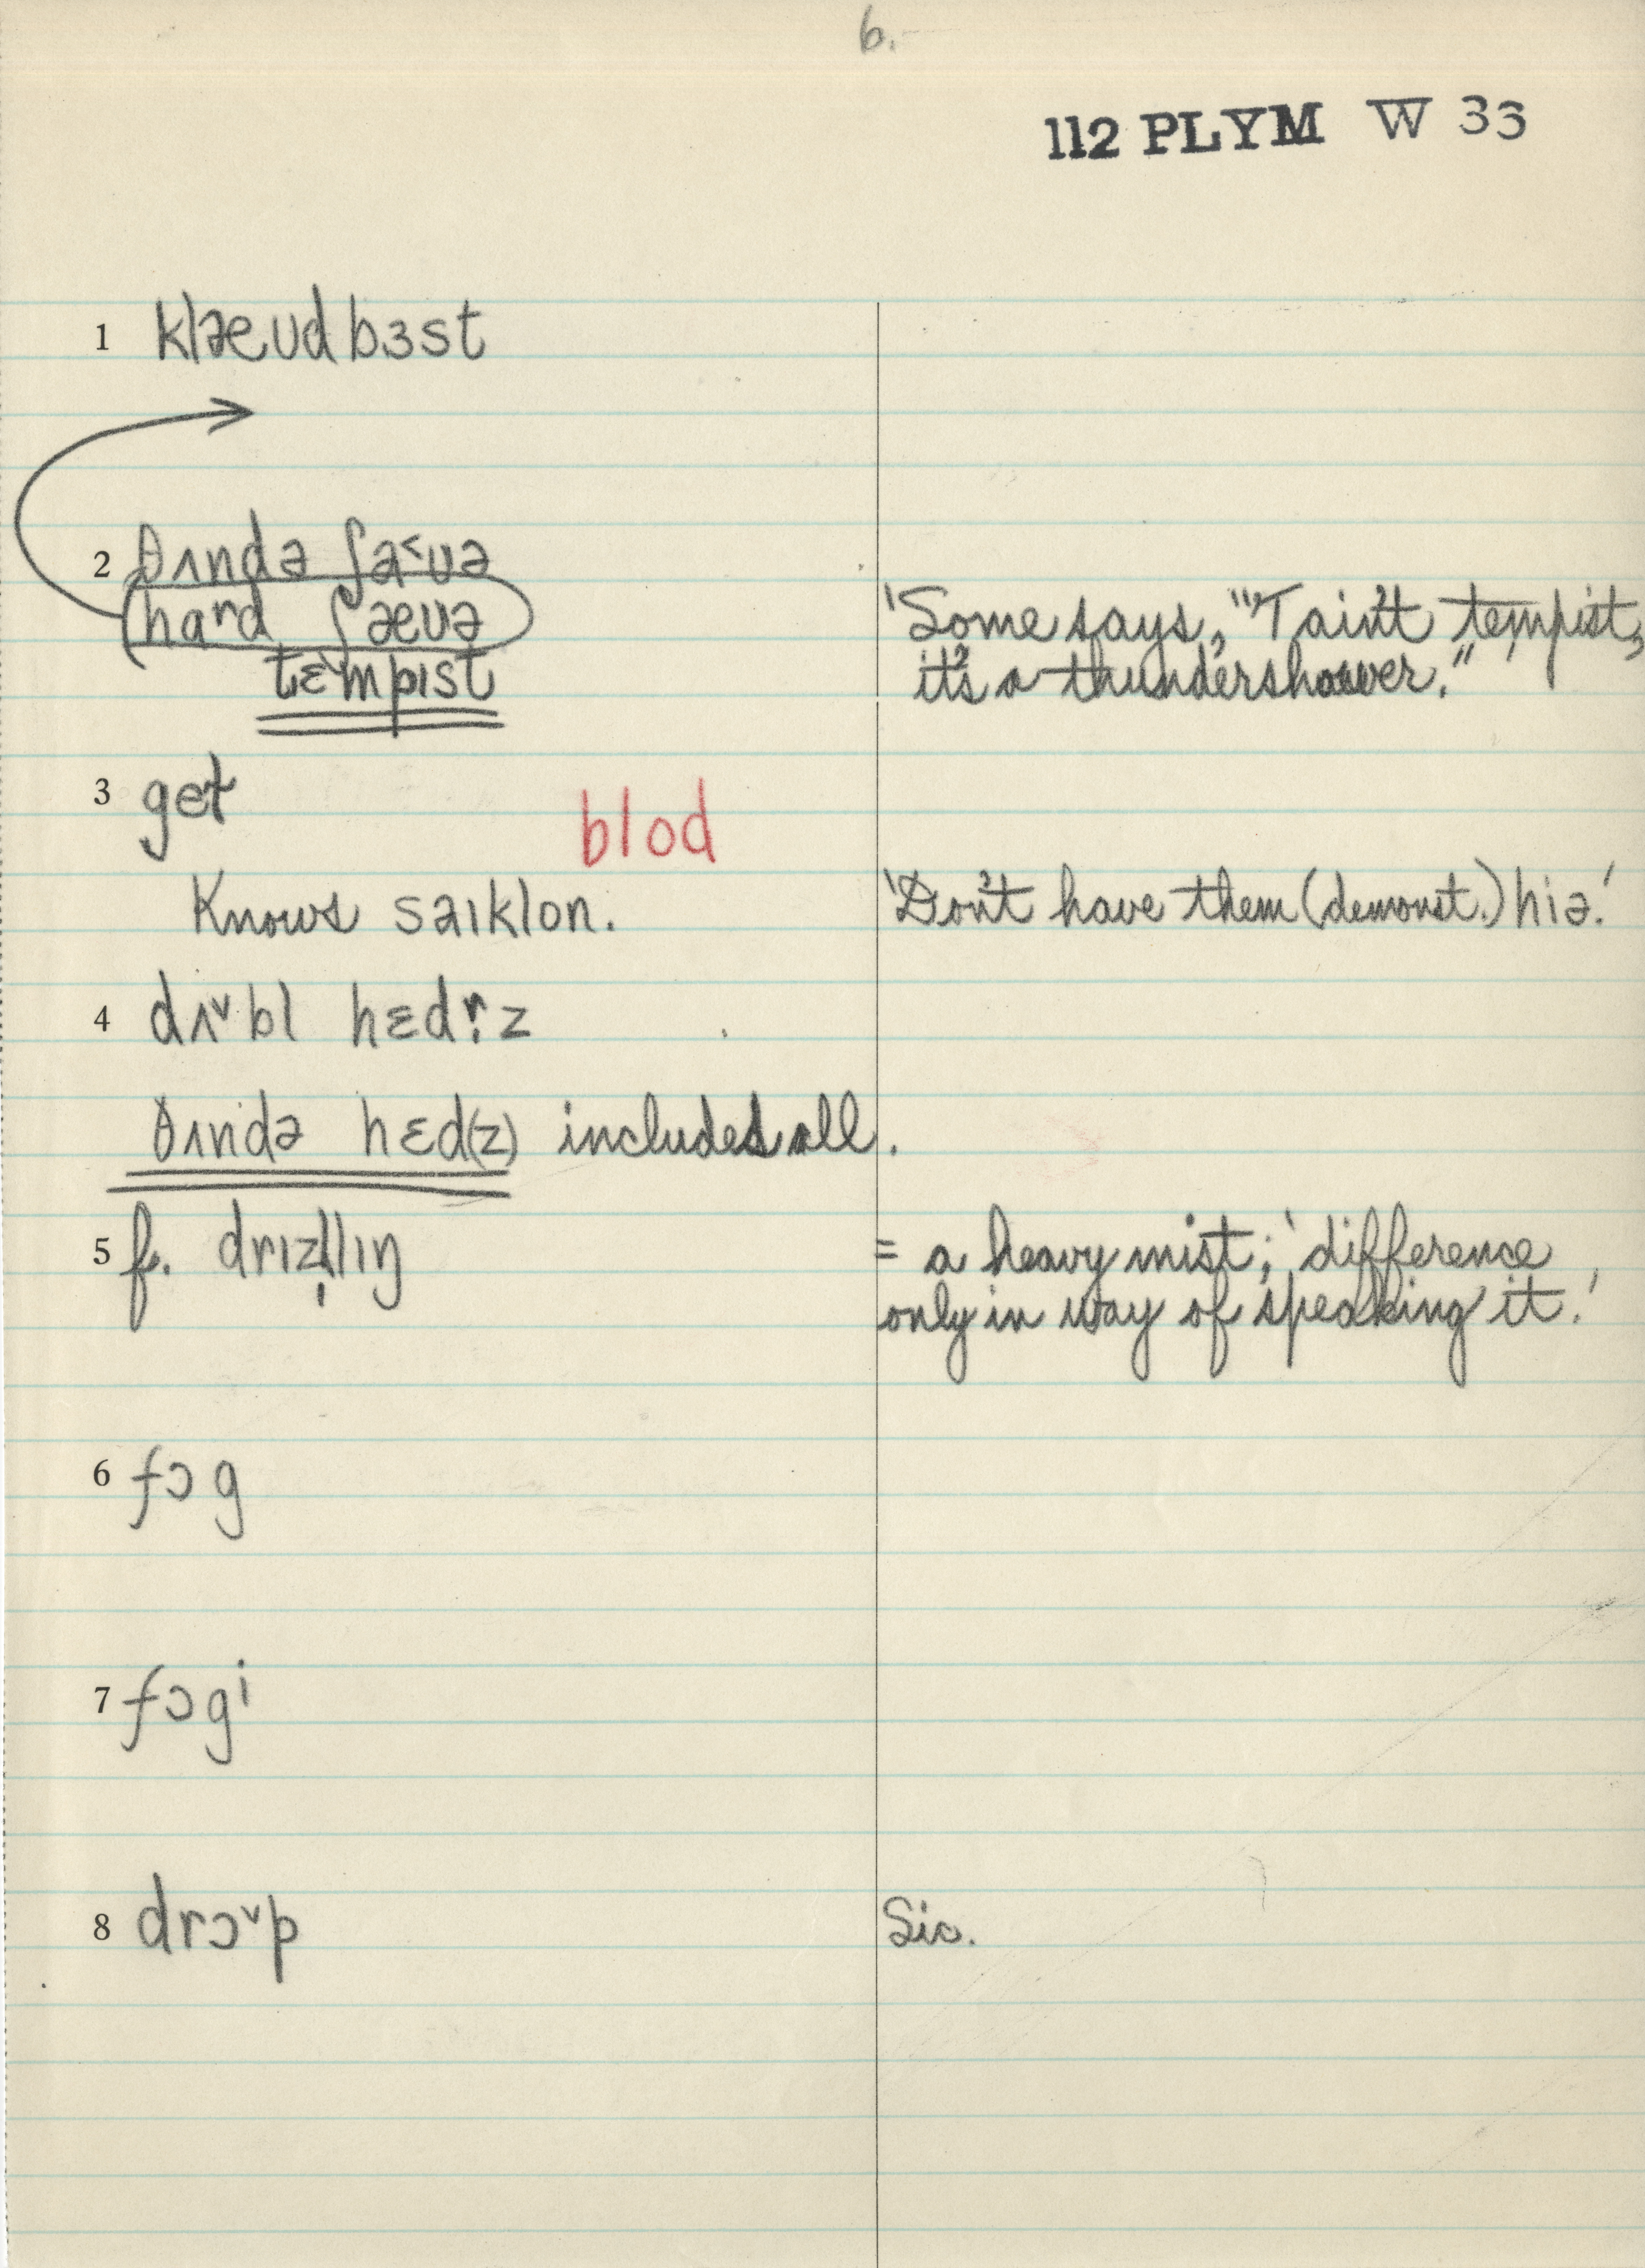 6.
112 PLYM W 33
1 klæʊdbɜst
2 θʌndə ʃa˂ʊə
hard ʃæʊə 'Some says, "'T ain't tempist,
tɛmpɪst it's a thundershower."
3 get
blod
Knows saɪklon. 'Don't have them (demonst.) hiə.'
4 dʌ˅bl hɛdr̩z
θʌndə hɛd(z) includes all.
5 f. drɪzl̩lɪŋ = a heavy mist; 'difference
only in way of speaking it.'
6 fɔg
7 fɔgⁱ
8 drɔ˅p Sic.